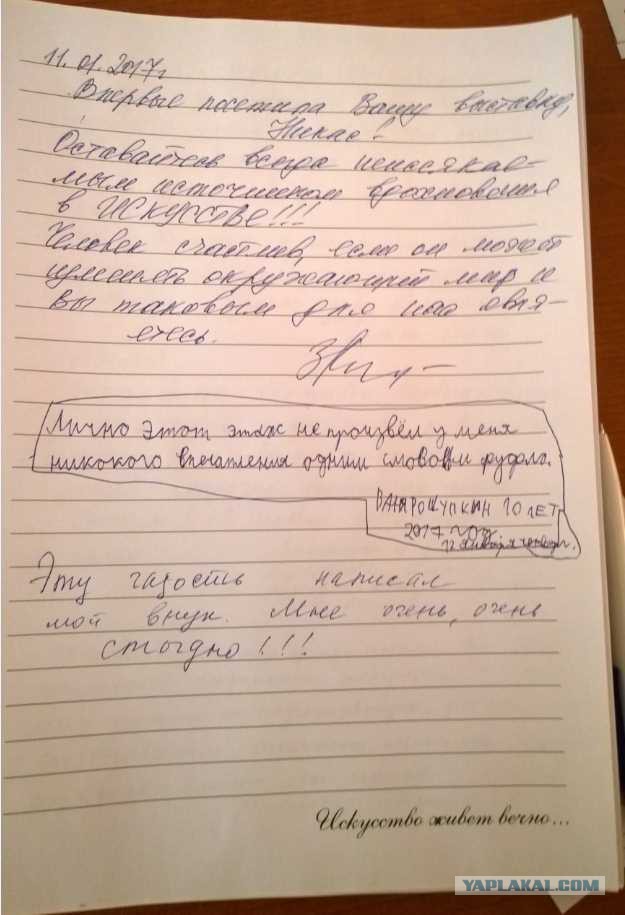 11.01.2017г
Впервые посетила Вашу выставку,
Никас!
Оставайтесь всегда неиссякае-
мым источником вдохновения
в ИСКУССТВЕ!!!
Человек счастлив, если он может
изменять окружающий мир и
Вы таковым для нас явля-
етесь.
Лично этот этаж не произвёл у меня
никокого впечатления одним словом
ВАНЯ РОЩУПКИН 10 ЛЕТ
2017 год
12 января четверг.
Эту гадость написал
мой внук. Мне очень, очень
стыдно!!!
Искусство живет вечно...
YAPLAKAL.COM